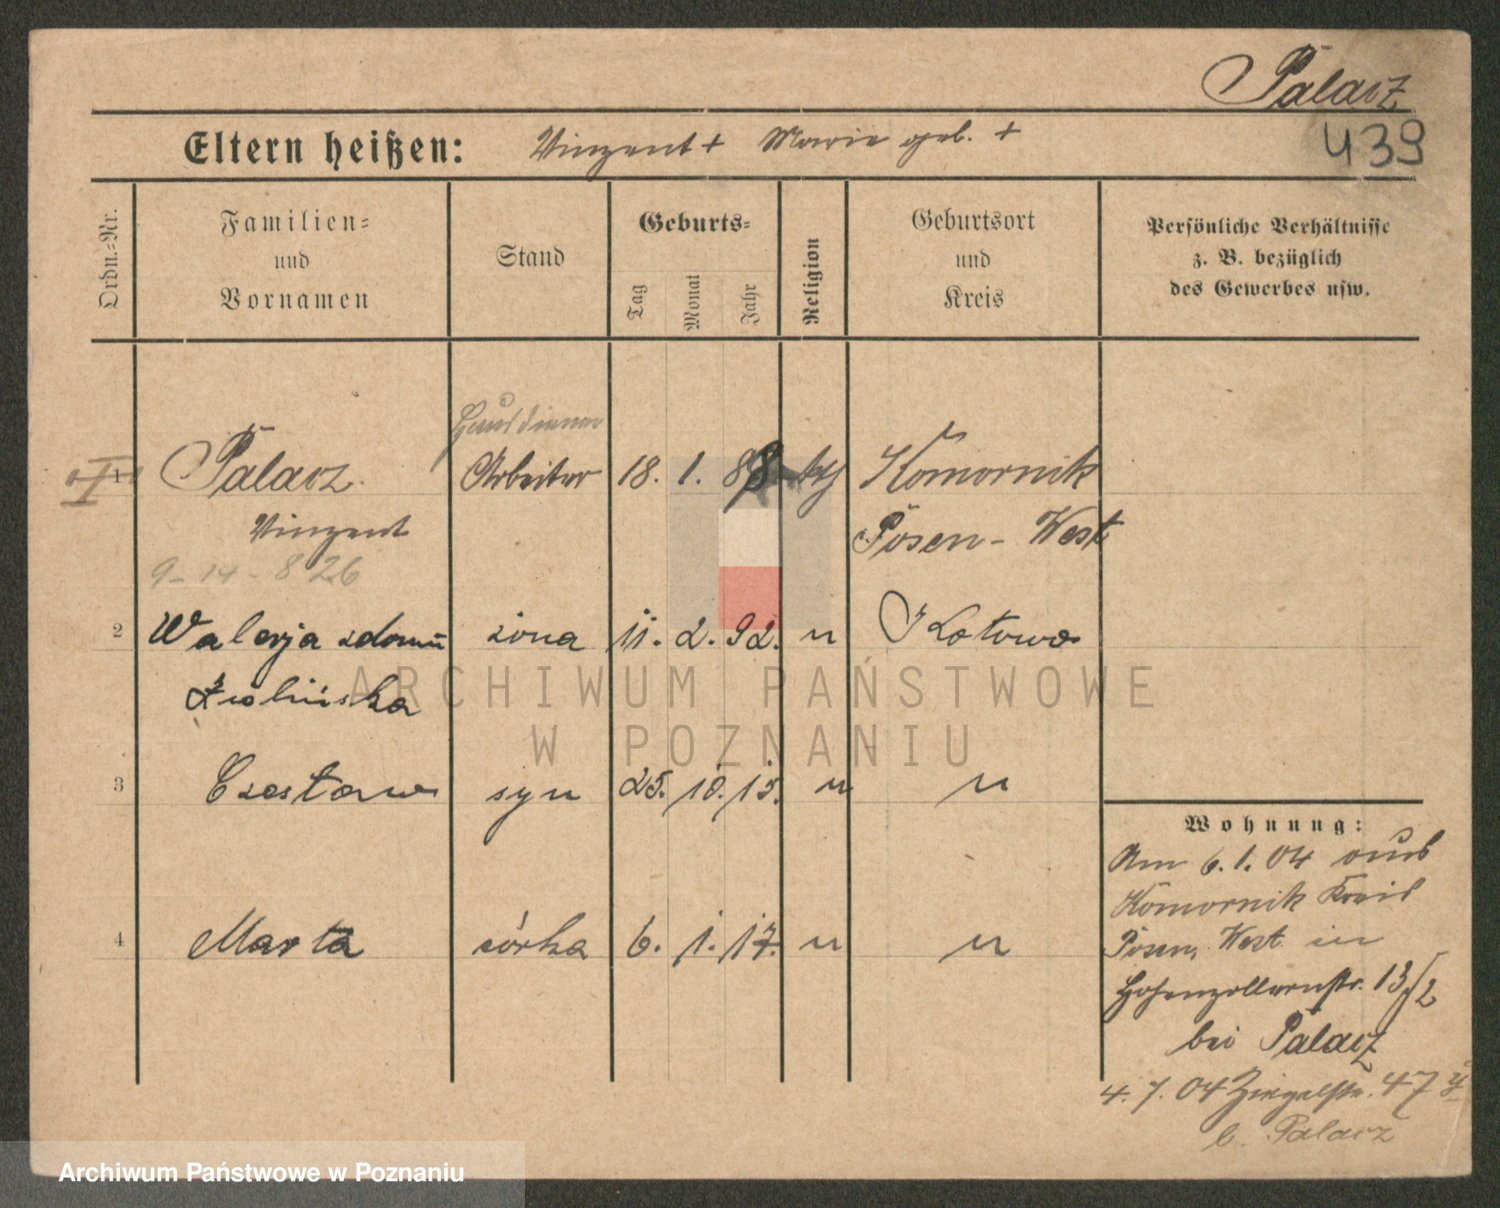 Palacz
439
Eltern heißen: Vinzent + Marie geb. +
Ordn.-Nr.
Familien-
und
Vornamen
Stand
Geburts-
Tag
Monat
Jahr
Religion
Geburtsort
und
Kreis
Persönliche Verhältnisse
z. B. bezüglich
des Gewerbes usw.
Hausdiener
1 Palacz Arbeiter 18. 1. 88 kth Komornik
Vinzent Posen-West
9-14-826
2 Walerja zdomu żona 11. 2. 92. " Kotowo
3 Czesław syn 25. 10. 15. " "
4 Marta córka 6. 1. 17. " "
Wohnung:
Am 6.1.04 aus
Komornik Kreis
Posen West in
Hohenzollernstr. 13/2
bei Palacz
4.7.04 Ziegelstr. 47
b. Palacz
ARCHIWUM PAŃSTWOWE
W POZNANIU
Archiwum Państwowe w Poznaniu